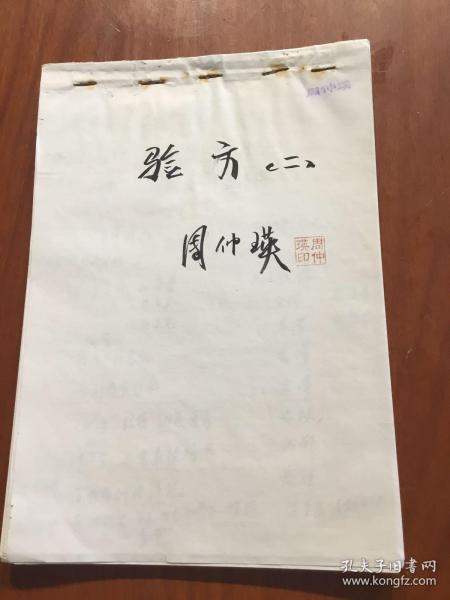 验方（二）
周仲瑛
周仲瑛印
孔夫子旧书网
www.kongfz.com